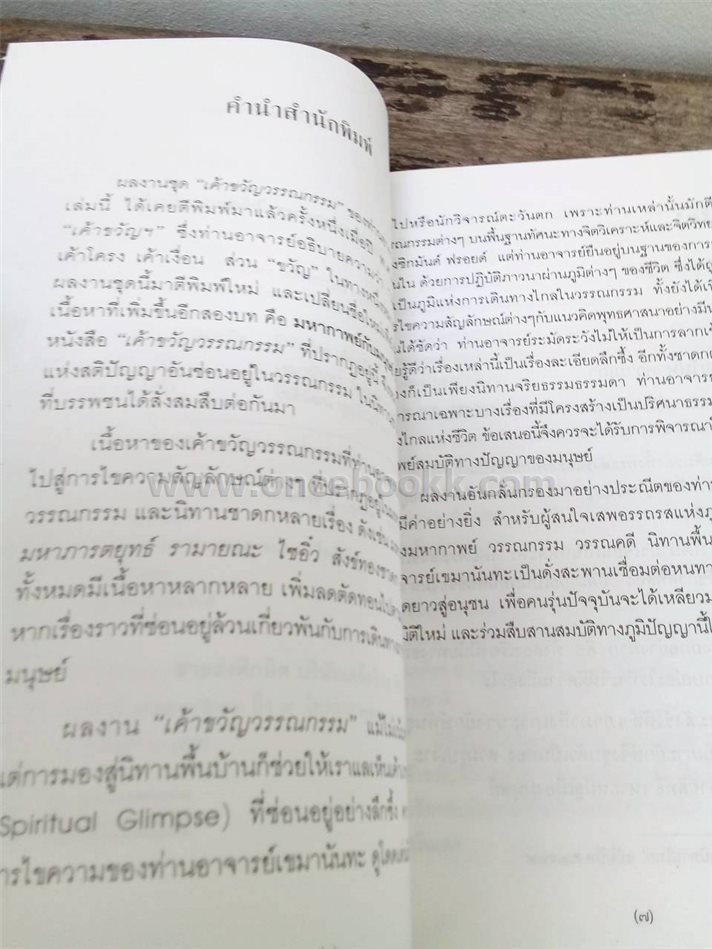 คำนำสำนักพิมพ์
ผลงานชุด "เค้าขวัญวรรณกรรม" ของท่าน
เล่มนี้ ได้เคยตีพิมพ์มาแล้วครั้งหนึ่งเมื่อปี
"เค้าขวัญฯ" ซึ่งท่านอาจารย์อธิบายความว่า
เค้าโครง เค้าเงื่อน ส่วน "ขวัญ" ในทาง
ผลงานชุดนี้มาตีพิมพ์ใหม่ และเปลี่ยนชื่อใหม่
เนื้อหาที่เพิ่มขึ้นอีกสองบท คือ มหากาพย์กับ
หนังสือ "เค้าขวัญวรรณกรรม" ที่ปรากฏอยู่นี้
แห่งสติปัญญาอันซ่อนอยู่ในวรรณกรรม ในนิทาน
ที่บรรพชนได้สั่งสมสืบต่อกันมา
เนื้อหาของเค้าขวัญวรรณกรรมที่ท่าน
ไปสู่การไขความสัญลักษณ์ต่างๆ ที่ปรากฏอยู่ใน
วรรณกรรม และนิทานชาดกหลายเรื่อง ดังเช่น
มหาภารตยุทธ์ รามายณะ ไซอิ๋ว สังข์ทอง
ทั้งหมดมีเนื้อหาหลากหลาย เพิ่มลดตัดทอนไป
หากเรื่องราวที่ซ่อนอยู่ล้วนเกี่ยวพันกับการเดินทาง
มนุษย์
ผลงาน "เค้าขวัญวรรณกรรม" แม้
แต่การมองสู่นิทานพื้นบ้านก็ช่วยให้เราแลเห็น
Spiritual Glimpse) ที่ซ่อนอยู่อย่างลึกซึ้ง
ารไขความของท่านอาจารย์เขมานันทะ
ไปหรือนักวิจารณ์ตะวันตก เพราะท่านเหล่านั้นมักตี
รณกรรมต่างๆ บนพื้นฐานทัศนะทางจิตวิเคราะห์และจิตวิทย
งซิกมันด์ ฟรอยด์ แต่ท่านอาจารย์ยืนอยู่บนฐานของการ
นใน ด้วยการปฏิบัติภาวนาผ่านภูมิต่างๆ ของชีวิต ซึ่งได้
เป็นภูมิแห่งการเดินทางไกลในวรรณกรรม ทั้งยังได้เ
รไขความสัญลักษณ์ต่างๆกับแนวคิดพุทธศาสนาอย่างมี
นได้ชัดว่า ท่านอาจารย์ระมัดระวังไม่ให้เป็นการลากเ
ยรู้ดีว่าเรื่องเหล่านี้เป็นเรื่องละเอียดลึกซึ้ง อีกทั้งชาดก
องก็เป็นเพียงนิทานจริยธรรมธรรมดา ท่านอาจารย
ารณาเฉพาะบางเรื่องที่มีโครงสร้างเป็นปริศนาธรรม
งไกลแห่งชีวิต ข้อเสนอนี้จึงควรจะได้รับการพิจารณา
พย์สมบัติทางปัญญาของมนุษย์
ผลงานอันกลั่นกรองมาอย่างประณีตของท่าน
มีค่าอย่างยิ่ง สำหรับผู้สนใจเสพอรรถรสแห่งภู
องมหากาพย์ วรรณกรรม วรรณคดี นิทานพื้น
จารย์เขมานันทะเป็นดั่งสะพานเชื่อมต่อหนทา
ดยาวสู่อนุชน เพื่อคนรุ่นปัจจุบันจะได้เหลียวม
มิติใหม่ และร่วมสืบสานสมบัติทางภูมิปัญญานี้
(๗)
www.oneebookk.com